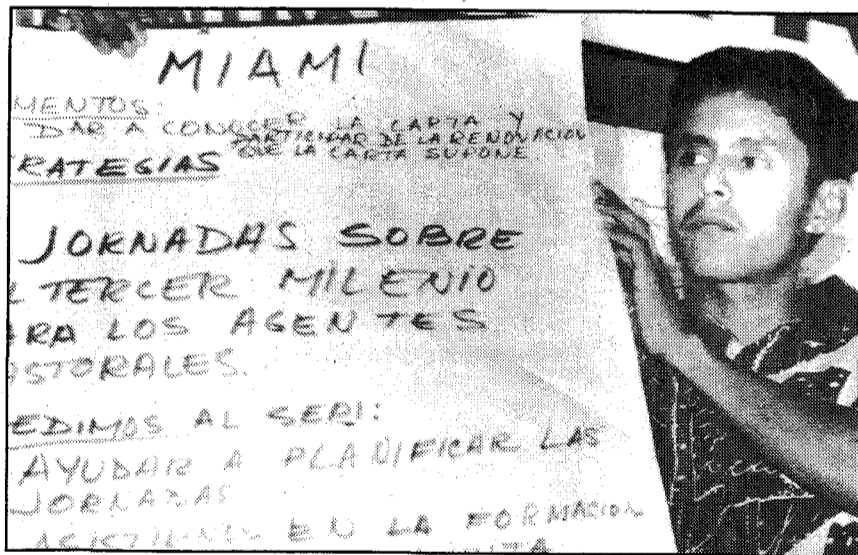 MIAMI
MENTOS:
DAR A CONOCER LA CARTA Y
PARTICIPAR DE LA RENOVACION
QUE LA CARTA SUPONE.
RATEGIAS
JORNADAS SOBRE
L TERCER MILENIO
RA LOS AGENTES
STORALES.
EDIMOS AL SEPI:
AYUDAR A PLANIFICAR LAS
JORNADAS
EN LA FORMACION